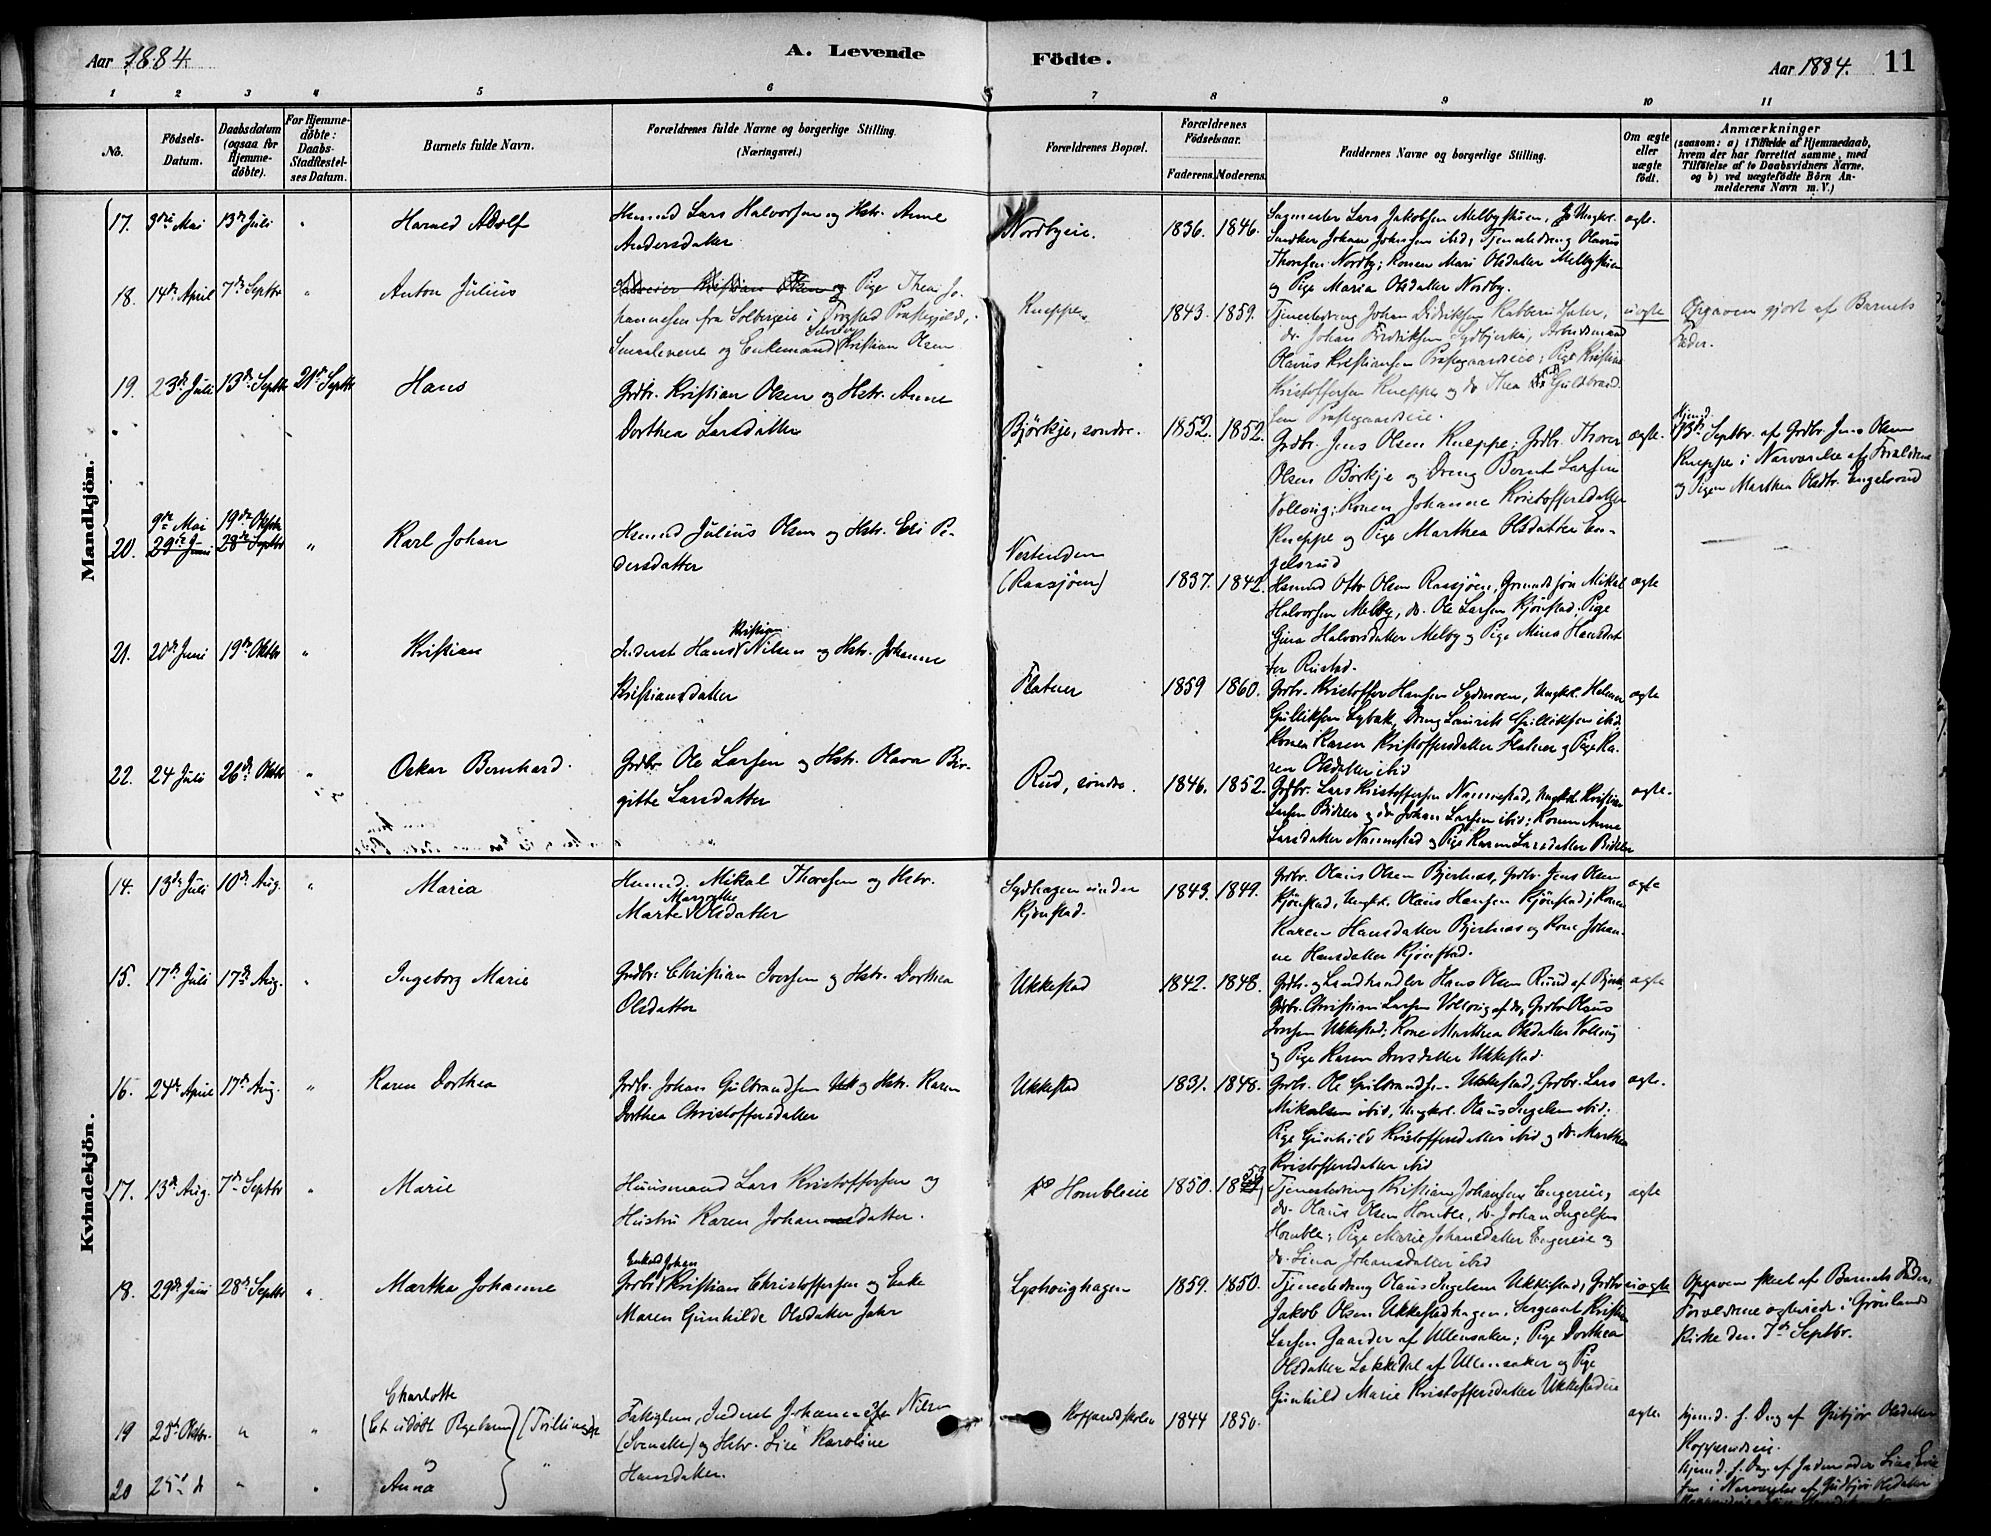 Aar 1884.
A. Levende
Födte.
Aar 1884. 11
1 2 3 4 5 6 7 8 9 10 11
No.
Födsels-
Datum.
Daabsdatum
(ogsaa for
Hjemme-
döbte).
For Hjemme-
döbte:
Daabs-
Stadfæstel-
ses Datum.
Barnets fulde Navn.
Forældrenes fulde Navne og borgerlige Stilling.
(Næringsvei.)
Forældrenes Bopæl.
Forældrenes
Födselsaar.
Faderens. Moderens.
Faddernes Navne og borgerlige Stilling.
Om ægte
eller
uægte
födt.
Anmærkninger
(saasom: a) i Tilfælde af Hjemmedaab,
hvem der har forrettet samme, med
Tilföielse af to Daabsvidners Navne,
og b) ved uægtefödte Börn An-
melderens Navn m. V.)
Mandkjön.
17. 3die Mai 13de Juli " Harned Adolf
Husmd Lars Halvorsen og Hstr. Anne
Andersdatter
Nordbyeie. 1836. 1846.
Sagmester Lars Jakobsen Melbystuen, Ungkl.
Snedker Johan Johnsen ibid, Tjenestedreng Olavus
Thoresen Nordby; Konen Mari Olsdatter Melbystuen
og Pige Maria Olsdatter Nordby.
ægte.
18. 14de April 7de Septbr " Anton Julius
Kristian Olsen og Pige Thea Jo-
hannesen fra Solbergeie i Trøgsted Præstegjeld,
Smaalenene og Enkemand Kristian Olsen
Kneppe 1843. 1859.
Tjenestedreng Johan Didriksen
do. Johan Fredriksen Sydbjerke, Arbeidsmand
Olaus Kristiansen Præstegaardseie; Pige Kristine
Kristoffersen Kneppe og do Thea Guldbrand-
sen Præstegaardseie.
uægte
Opgaven gjort af Barnets
Fader.
19. 23de Juli 13de Septbr 21de Septbr Hans
Grdbr. Kristian Olsen og Hstr. Anne
Dorthea Larsdatter
Björkje, søndre. 1852. 1852.
Grdbr. Jens Olsen Kneppe; Grdbr. Thorer
Olsen Börkje og Dreng Bernt Larsen
Vollaug; Konen Johanne Kristoffersdatter
Kneppe og Pige Marthea Olsdatter En-
gelsrud
ægte.
Hjemd.
13de Septbr. af Grdbr. Jens Olsen
Kneppe i Nærværelse af Forældrene
og Pigen Marthea Olsdtr. Engelsrud
20. 9de Mai 19de Oktbr
29de Juni 28de Septbr " Karl Johan
Husmd Julius Olsen og Hstr. Eli Pe-
dersdatter
Vestenden
(Raasjøen) 1837. 1842.
Husmd Otto Olsen Raasjøen, Grmandssøn Mikal
Halvorsen Melby, do. Ole Larsen Kjønstad; Pige
Gina Halvorsdatter Melby og Pige Mina Hansdat-
ter Rustad.
ægte
21. 20de Juni 19de Oktbr " Kristian
Kristian
Inderst Hans Nilsen og Hstr. Johanne
Kristiansdatter
Flatner 1859 1860.
Grdbr. Kristoffer Hansen Sydmoen, Ungkl. Helmer
Gulliksen Lybæk, Dreng Laurits Gulliksen ibid
Konen Karen Kristoffersdatter Flatner og Pige Ka-
ren Olsdatter ibid
ægte
22. 24 Juli 26de Oktbr " Oskar Bernhard.
Grdbr Ole Larsen og Hstr. Olava Bir-
gitte Larsdatter
Rud, søndre. 1846. 1852.
Grdbr. Lars Kristoffersen Nannestad, Ungkl. Kristian
Larsen Bidtler og do Johan Larsen ibid; Konen Anne
Larsdatter Nannestad og Pige Karen Larsdatter Bidtler
ægte.
Kvindekjön.
14. 13de Juli 10de Aug. " Maria
Husmd. Mikal Thoresen og Hstr.
Margrethe
Marte Olsdatter
Sydhagen under
Kjønstad. 1843. 1849.
Grdbr. Olaus Olsen Bjertnæs, Grdbr. Jens Olsen
Kjönstad, Ungkl. Olaus Hansen Kjönstad; Konen
Karen Hansdatter Bjertnæs og Kone Johan-
ne Hansdatter Kjönstad.
ægte
15. 17de Juli 17de Aug. " Ingeborg Marie
Grdbr. Christian Iversen og Hstr. Dorthea
Olsdatter
Ukkestad 1842. 1848.
Grdbr. og Landhandler Hans Olsen Ruud af Bjerke
Grdbr. Christian Larsen Vollaug af do, Grdbr Olaus
Iversen Ukkestad; Kone Marthea Olsdatter Vollaug
og Pige Karen Iversdatter Ukkestad.
ægte
16. 24de April 17de Aug. " Karen Dorthea
Grdbr. Johan Gulbrandsen og Hstr. Karen
Dorthea Christoffersdatter
Ukkestad 1831. 1848.
Grdbr. Ole Gulbrandsen Ukkestad, Grdbr. Lars
Mikalsen ibid, Ungkl. Olaus Ingelsen ibid;
Pige Gunhild Kristoffersdatter ibid og do. Marthea
Kristoffersdatter ibid
ægte.
17. 13de Aug. 7de Septbr " Marie
Huusmand Lars Kristoffersen og
Hustru Karen Johannesdatter.
Hombleeie 1850. 1853
Tjenestedreng Kristian Johansen Engereie,
do. Olaus Olsen Homble, do. Johan Ingelsen
Homble; Pige Marie Johansdatter Engereie og
do. Lina Johansdatter ibid
ægte
18. 29de Juni 28de Septbr " Martha Johanne
Enkemd Johan
Grdbr Kristian Christoffersen og Enke
Maren Gunhilde Olsdatter Jahr
Lyshoughagen 1859. 1850.
Tjenestedreng Olaus Ingelsen Ukkestad, Grdbr
Jakob Olsen Ukkestadhagen, Sergeant Kristian
Larsen Gaarder af Ullensaker; Pige Dorthea
Olsdatter Løkkedal af Ullensaker og Pige
Gunhild Marie Kristoffersdatter Ukkestadeie
uægte
Opgaven skeet af Barnets Fader,
Forældrene ægteviede i Grønlands
Kirke den 7de Septbr.
19 25de Oktbr. " " Charlotte
(Et udøbt Pigebarn) (Trillinger
Fattiglem, Inderst Johannes Nilsen
(Svenske) og Hstr. Lise Karoline
Hansdatter.
1844 1850.
ægte.
Hjemd. f. Dag af Gubjør Olsdatter
20 25de do " " Anna "
Hjemd. f. Dag af Jordemoder
i Nærværelse af Gudbjør Olsdatter